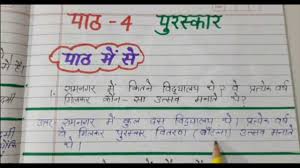 पाठ - 4 पुरस्कार
पाठ में से
1. रामनगर में कितने विद्यालय थे? वे प्रत्येक वर्ष
मिलकर कौन-सा उत्सव मनाते थे?
उत्तर रामनगर में कुल दस विद्यालय थे। प्रत्येक वर्ष
वे मिलकर पुरस्कार वितरण उत्सव मनाते
थे।